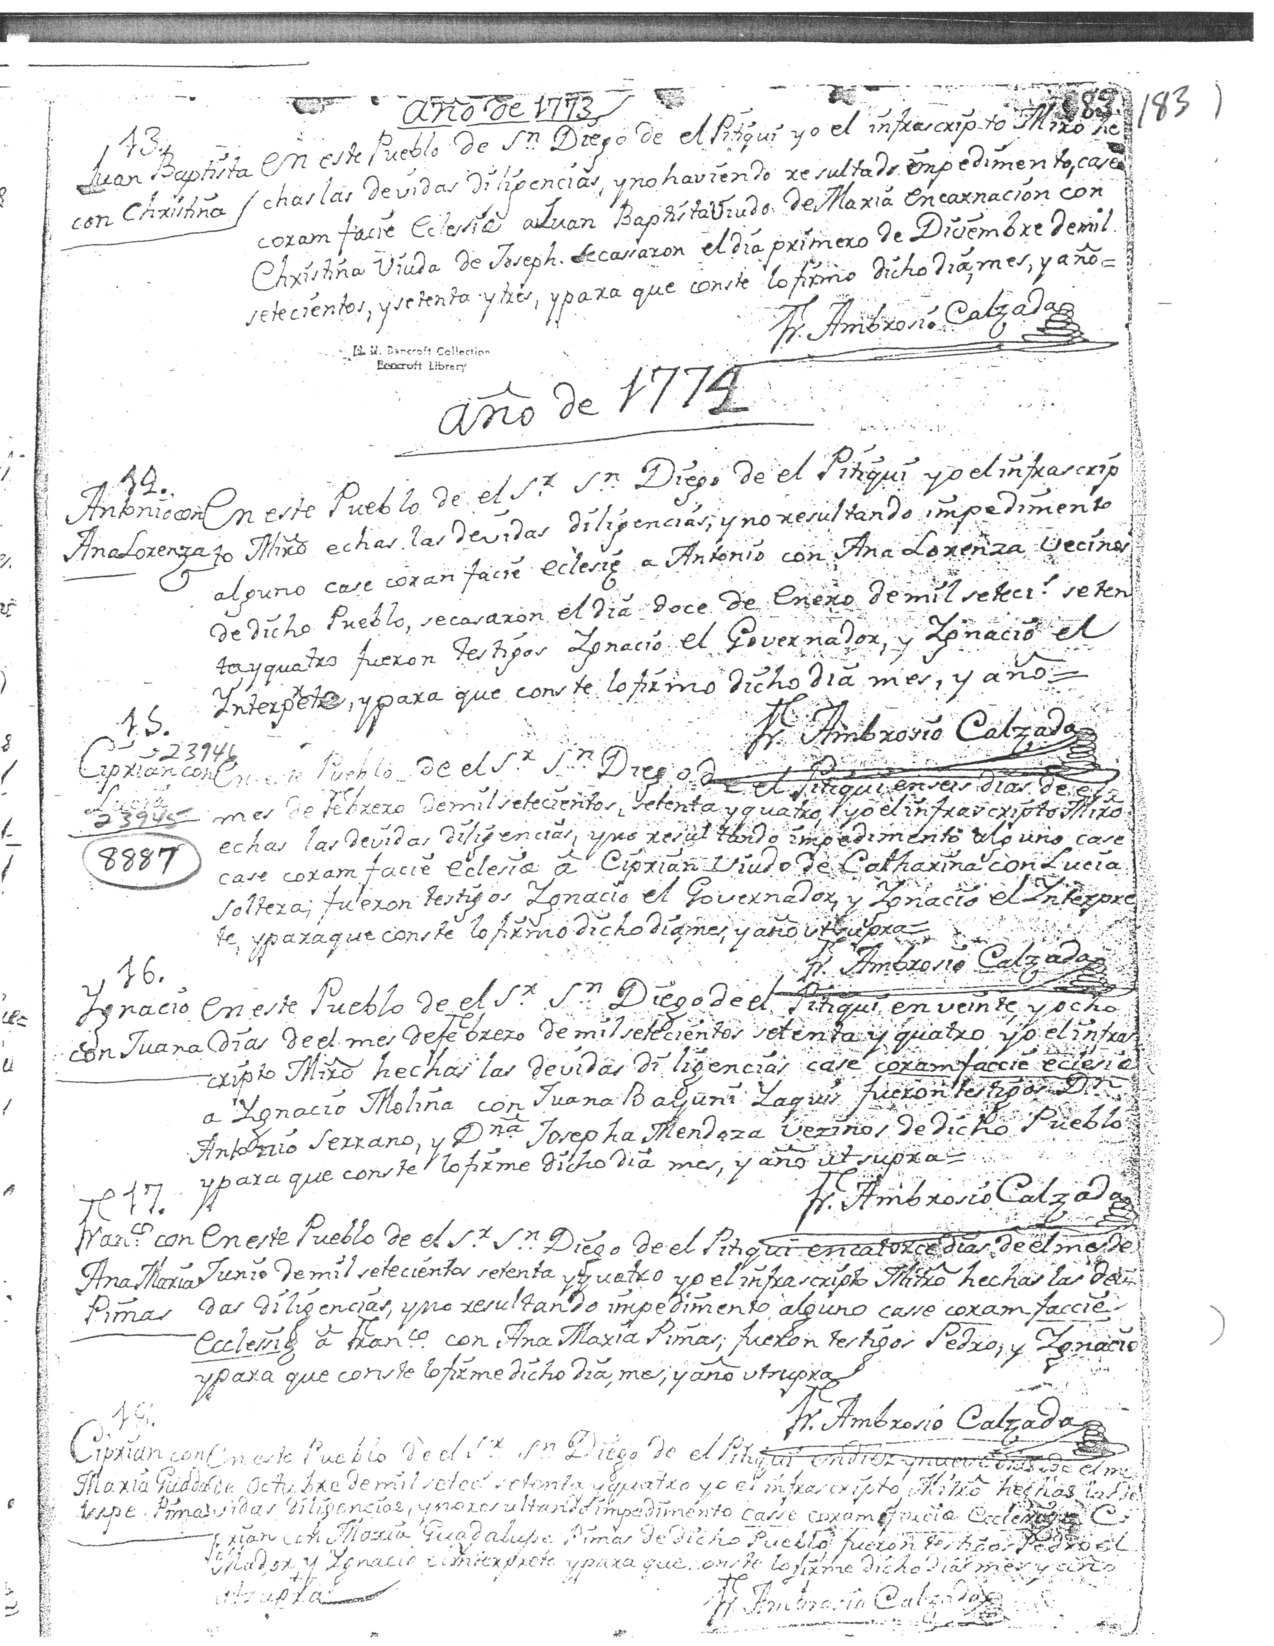 año de 1773
83. 183
13.
Juan Baptista
con Christina
En este Pueblo de Sn. Diego de el Pitiqui yo el infrascripto Mirõ he
chas las devidas diligencias, y no haviendo resultado impedimento, case
coram facie Eclesiæ a Juan Baptista Viudo de Maria Encarnación con
Christina Viuda de Joseph. Se casaron el dia primero de Diciembre de mil
setecientos, y setenta y tres, y para que conste lo firmo dicho dia, mes, y año=
Fr. Ambrosio Calzada
H. H. Bancroft Collection
Bancroft Library
año de 1774
14.
Antonio con
Ana Lorenza
En este Pueblo de el Sr. Sn. Diego de el Pitiqui yo el infrascrip
to Mirõ echas las devidas diligencias, y no resultando impedimento
alguno case coran facie eclesiæ a Antonio con Ana Lorenza Vecinos
de dicho Pueblo, se casaron el dia doce de Enero de mil seteci.s seten
ta y quatro fueron testigos Ygnacio el Governador, y Ygnacio el
Interprete, y para que conste lo firmo dicho dia mes, y año=
Fr. Ambrosio Calzada
15.
23946
Ciprian con
Lucia
23945
8887
En este Pueblo de el Sr. Sn. Diego de el Pitiqui en seis dias de el
mes de Febrero de mil setecientos, setenta y quatro, yo el infrascripto Mirõ
echas las devidas diligencias, y no resultando impedimento alguno case
case coram facie Eclesiæ â Ciprian Viudo de Catharina con Lucia
soltera; fueron testigos Ygnacio el Governador, y Ygnacio el Interpre
te, y para que conste lo firmo dicho dia, mes, y año ut supra=
Fr. Ambrosio Calzada
16.
Ygnacio
con Juana
En este Pueblo de el Sr. Sn. Diego de el Pitiqui en veinte, y ocho
Dias de el mes de Febrero de mil setecientos setenta y quatro yo el infras
cripto Mirõ hechas las devidas diligencias case coram faccie eclesiæ
a Ygnacio Molina con Juana Baguni Yaquis fueron testigos Dn.
Antonio Serrano, y Dña Josepha Mendoza Vezinos de dicho Pueblo
y para que conste lo firme dicho dia mes, y año ut supra=
Fr. Ambrosio Calzada
17.
Franco. con
Ana Maria
Pimas
En este Pueblo de el Sr. Sn. Diego de el Pitiqui en catorce dias de el mes de
Junio de mil setecientos setenta y quatro yo el infrascripto Mitrõ hechas las devi
das diligencias, y no resultando impedimento alguno casse coram faccie
Ecclesiæ â Franco. con Ana Maria Pimas; fueron testigos Pedro, y Ygnacio
y para que conste lo firme dicho dia, mes, y año ut supra
Fr. Ambrosio Calzada
18.
Ciprian con
Maria Guada
lupe Pimas
En este Pueblo de el Sr. Sn. Diego de el Pitiqui en diez y nueve dias de el me
de Octubre de mil setec.s setenta y quatro yo el infrascripto Mitrõ hechas las de
vidas diligencias, y no resultando impedimento casse coram faccie Ecclesiæ a Ci
prian con Maria Guadalupe Pimas de dicho Pueblo fueron testigos Pedro el
y Ygnacio el Interprete y para que conste lo firme dicho dia mes y año
ut supra
Fr. Ambrosio Calzada